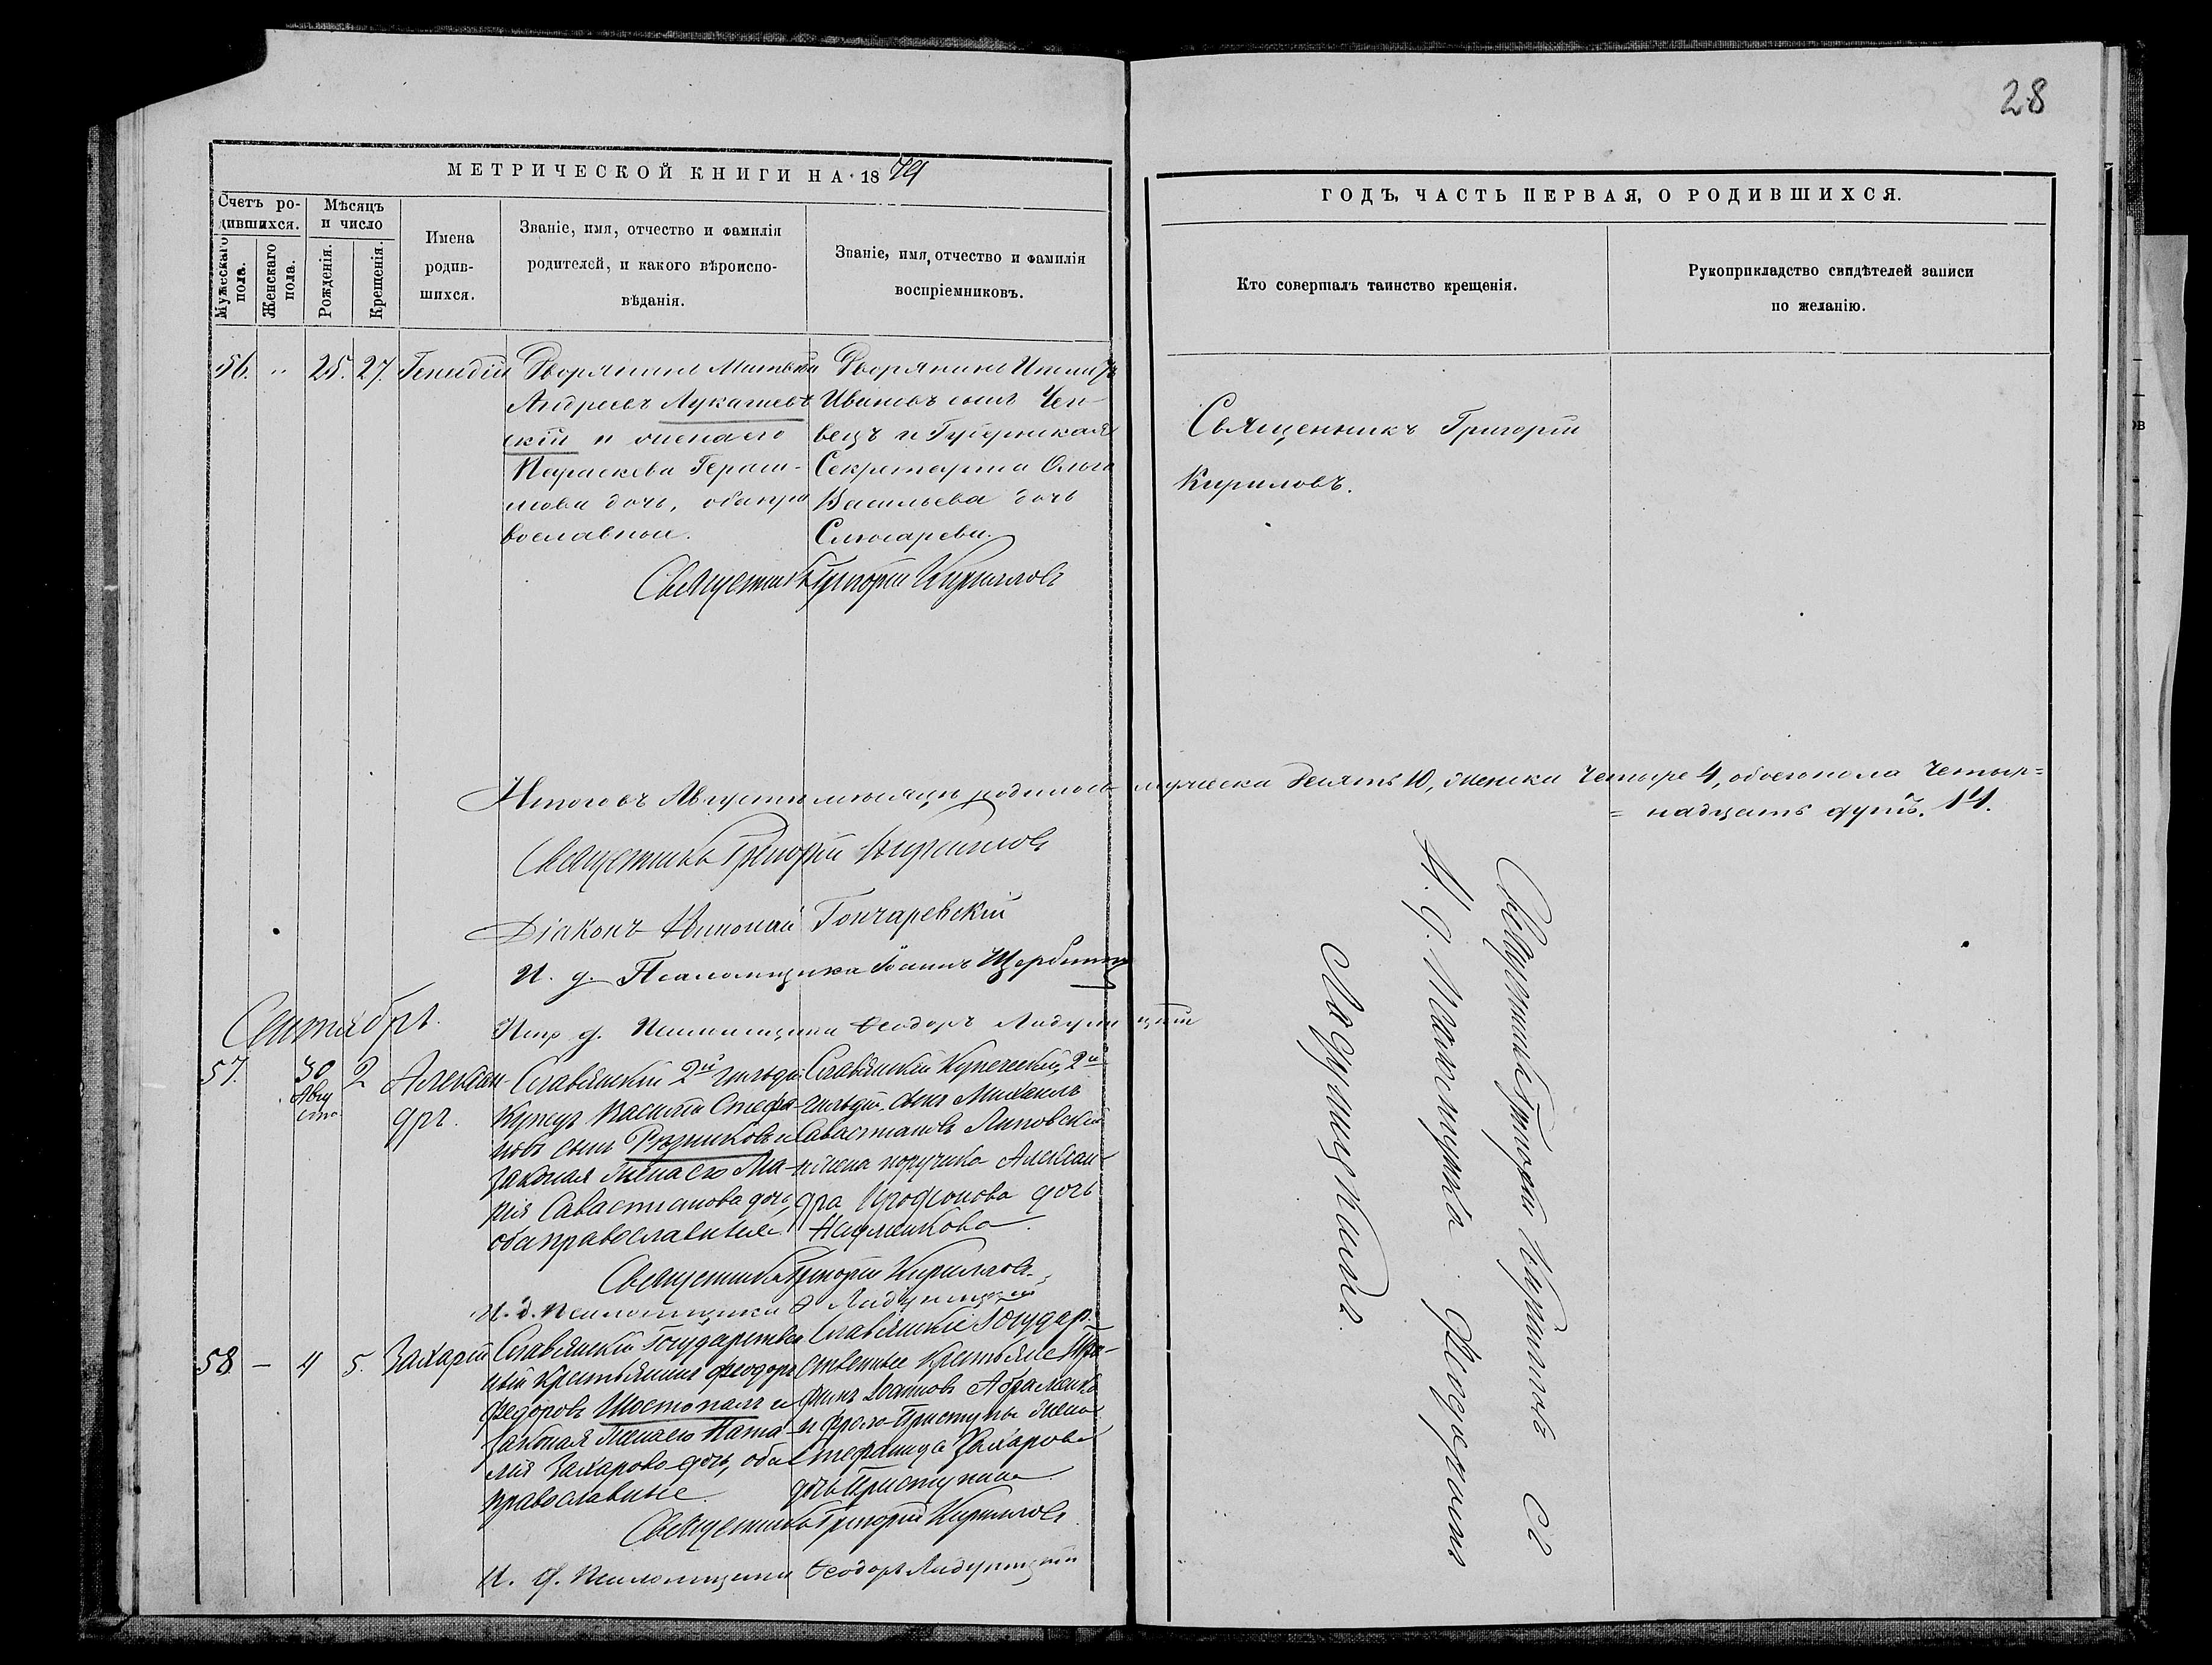 28
МЕТРИЧЕСКОЙ КНИГИ НА 1879
ГОДЪ, ЧАСТЬ ПЕРВАЯ, О РОДИВШИХСЯ.
Счетъ ро-
дившихся.
Мужескаго пола.
Женскаго пола.
Мѣсяцъ
и число
Рожденія.
Крещенія.
Имена
родив-
шихся.
Званіе, имя, отчество и фамилія
родителей, и какого вѣроиспо-
вѣданія.
Званіе, имя, отчество и фамилія
воспріемниковъ.
Кто совершалъ таинство крещенія.
Рукоприкладство свидѣтелей записи
по желанію.
56. " 25. 27.
Дворянинъ Матвѣй
Андреевъ Лукашев
скій и жена его
Параскева Гераси-
мова дочь, оба пра
вославные.
Дворянинъ
Ивановъ сынъ
вецъ и Губернская
Секретарша Ольга
Васильева дочь
Слюсарева.
Священникъ Григорій
Кириловъ.
Священникъ Григорій Кириловъ
Итого въ Августѣ мѣсяцѣ родилось мужеска десять 10, женска четыре 4, обоего пола четыр=
= надцать душъ. 14.
Священникъ Григорій Кириловъ
Діаконъ Николай Гончаревскій
И. д. Псаломщика Іоаннъ Щербина
Сентябрь.
Испр. д. Псаломщика Ѳеодоръ Ладупицкій
57. 30 Авгу ста 2 Алексан-
дръ.
Славянскій 2й гильдіи
Купецъ Василій Стефа-
новъ сынъ Рѣзниковъ и
законая жена его Ма-
рія Савастианова дочь,
оба православные.
Славянскій Купеческій 2й
гильдіи сынъ Михаилъ
Савастіановъ Липовскій
и жена поручика Алексан-
дра дочь
Священникъ Григорій Кириловъ
И. д. Псаломщика Ѳ Ладупицкій
58 — 4 5. Захарій
Славянскій Государствен
ный крестьянинъ Феодоръ
Федоровъ Шостопалъ и
законая жена его Ната-
лія Захарова дочь, оба
православные.
Славянскіе Государ-
ственные крестьяне Тро-
фимъ Іоанновъ Абраменко
и жена
Стефанида Захарова
дочь Приступина
Священникъ Григорій Кириловъ
И. д. Псаломщика Ѳеодоръ Ладупицкій
Священникъ Григорій Кириловъ съ
И. д. Псаломщика Ѳеодоромъ
Ладупицкимъ.